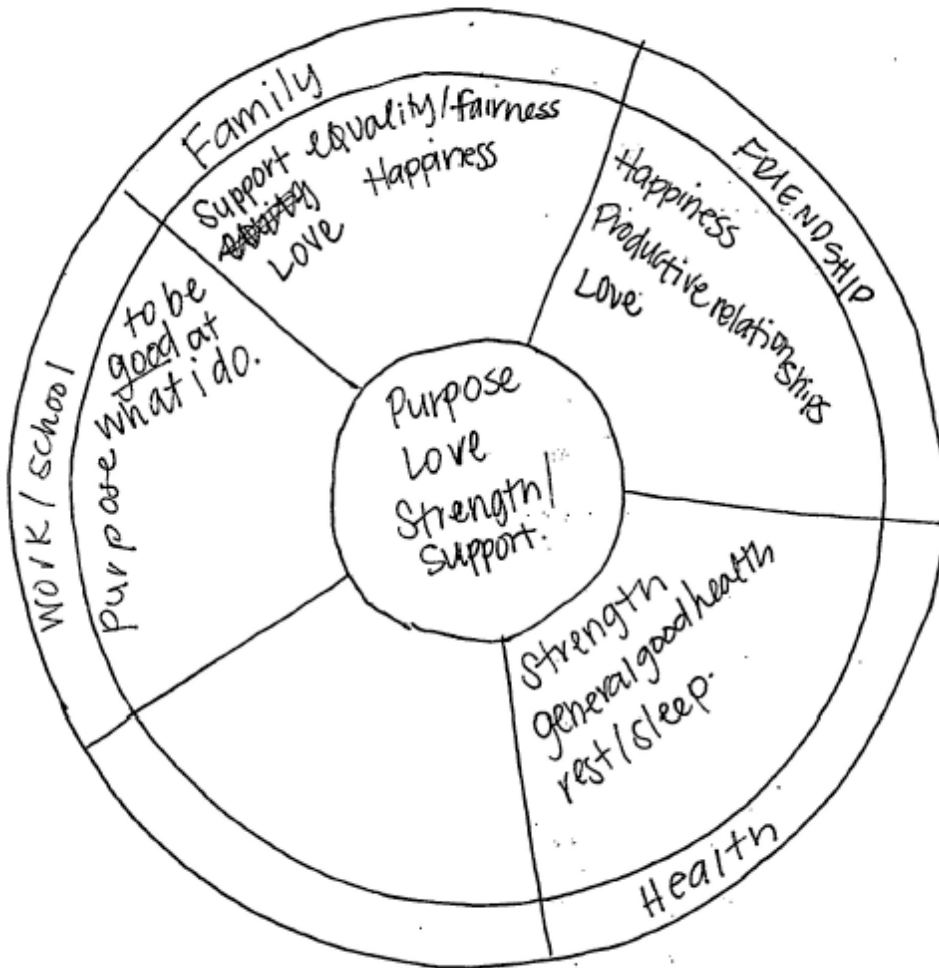 Family
Support equality/fairness
Happiness
Love
FRIENDSHIP
Happiness
Productive relationships
Love
work/school
to be
good at
what i do.
purpose
Purpose
Love
Strength/
Support.
Strength
general good health
rest/sleep.
Health